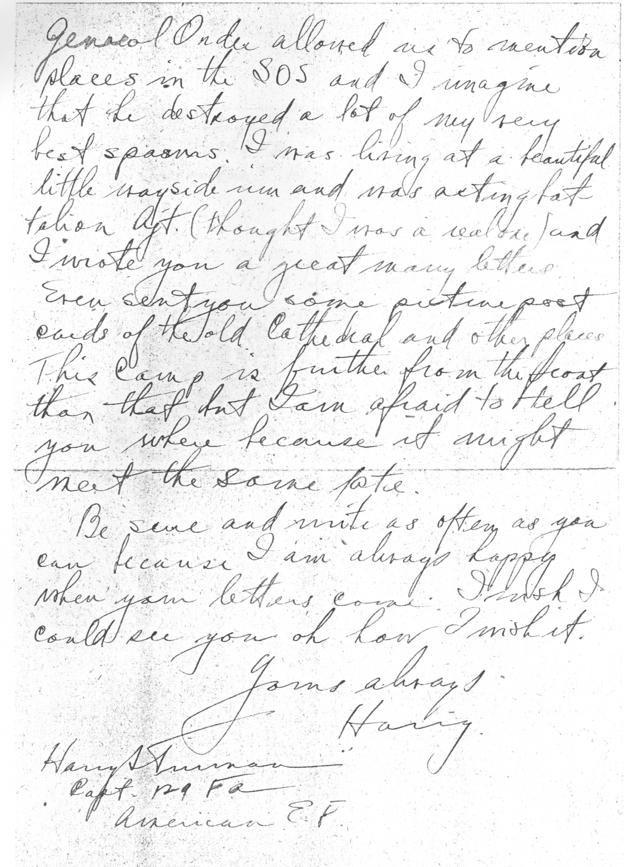 General Order allowed us to mention
places in the SOS and I imagine
that he destroyed a lot of my very
best spasms. I was living at a beautiful
little wayside inn and was acting bat-
talion Ajt. (thought I was a real one) and
I wrote you a great many letters.
Even sent you some picture post
cards of the old Cathedral and other places
This Camp is further from the front
than that but I am afraid to tell
you where because it might
meet the same fate.
Be sure and write as often as you
can because I am always happy
when your letters come. I wish I
could see you oh how I wish it.
Yours always
Harry.
Harry S Truman
Capt. 129 FA
American E.F.